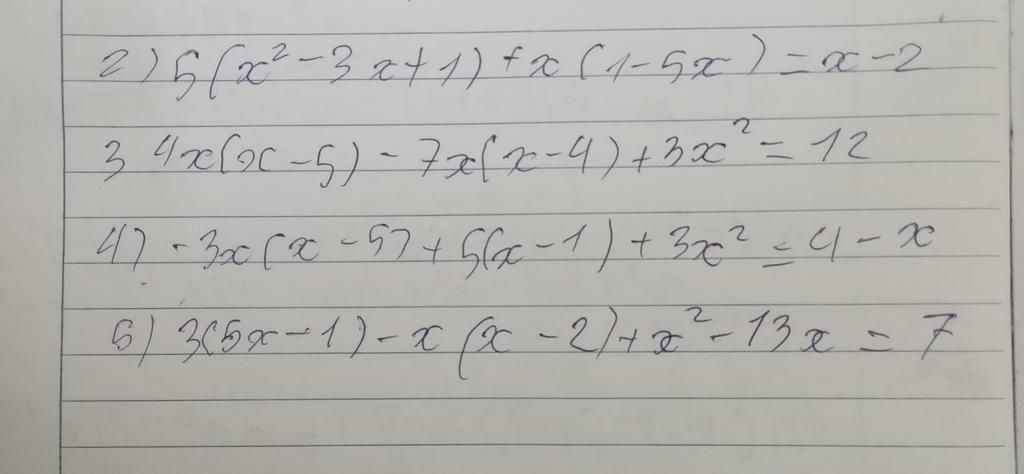 2) 5(x² - 3x + 1) + x(1 - 5x) = x - 2
3 4x(x - 5) - 7x(x - 4) + 3x² = 12
4) - 3x(x - 5) + 5(x - 1) + 3x² = 4 - x
5) 3(5x - 1) - x(x - 2) + x² - 13x = 7